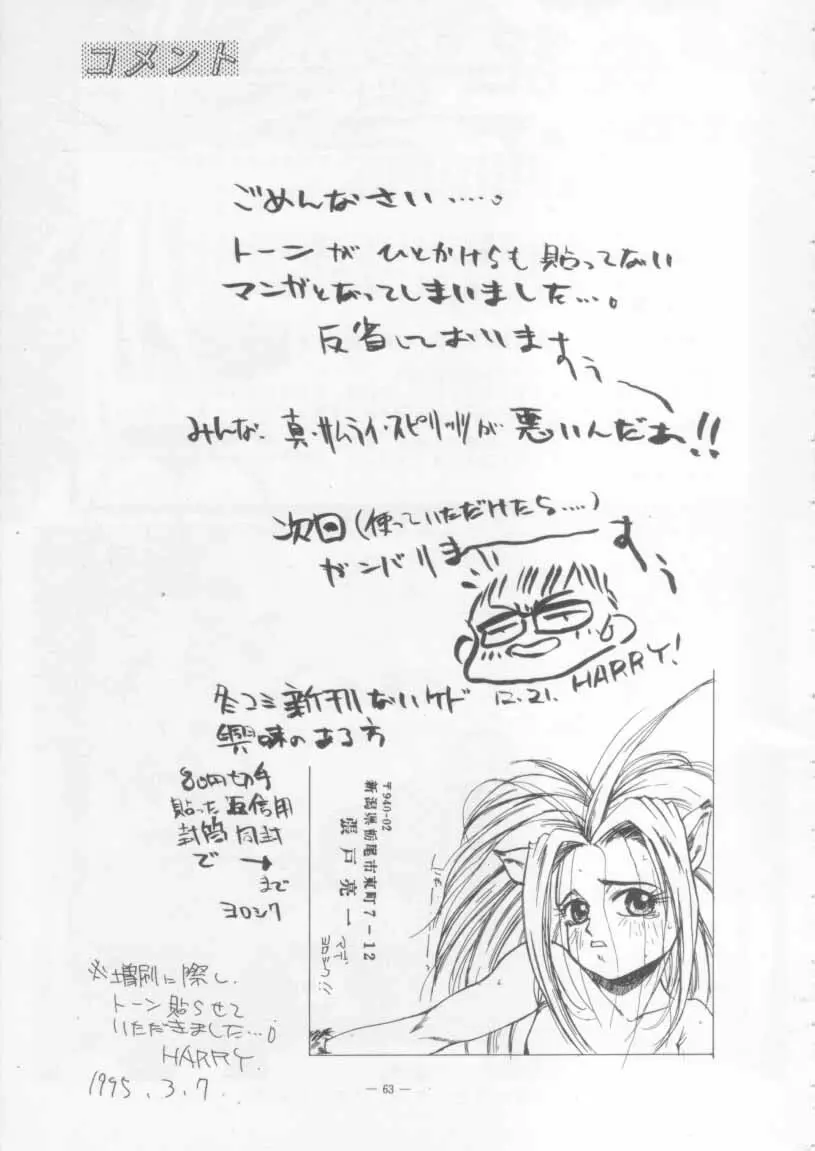 コメント
ごめんなさい……。
トーンがひとかけらも貼ってない
マンガとなってしまいました…。
反省しております
みんな、真・サムライ・スピリッツが悪いんだぁ!!
次回(使っていただけたら……)
ガンバリます
HARRY!
12.21.
冬コミ新刊ないケド
興味のある方
80円切手
貼った返信用
封筒同封
で →
まで
ヨロシク
〒940-02
新潟県栃尾市東町7-12
張戸亮一
マデ
ヨロシク!!
※増刷に際し、
トーン貼らせて
いただきました…。
HARRY.
1995.3.7.
— 63 —